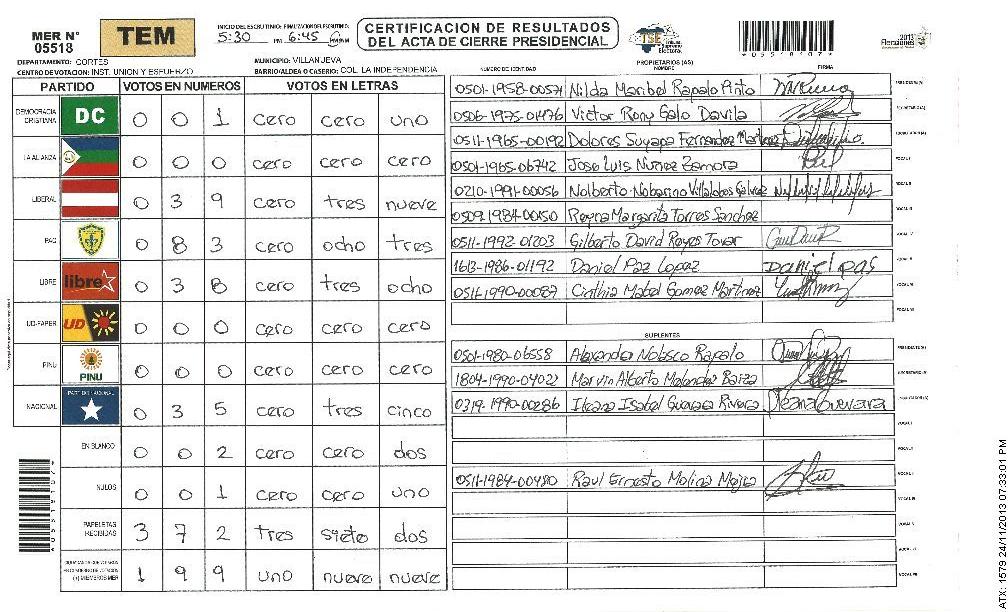 MER N° 05518
TEM
INICIO DEL ESCRUTINIO: FINALIZACION DEL ESCRUTINIO:
5:30 PM 6:45
CERTIFICACION DE RESULTADOS
DEL ACTA DE CIERRE PRESIDENCIAL
TSE
Tribunal Supremo Electoral
*05518107*
Elecciones 2013
DEPARTAMENTO: CORTES
MUNICIPIO: VILLANUEVA
CENTRO DE VOTACION: INST. UNION Y ESFUERZO
BARRIO/ALDEA O CASERIO: COL. LA INDEPENDENCIA
NUMERO DE IDENTIDAD PROPIETARIOS (AS) NOMBRE FIRMA
PARTIDO VOTOS EN NUMEROS VOTOS EN LETRAS
DEMOCRACIA CRISTIANA DC 0 0 1 cero cero uno
LA ALIANZA 0 0 0 cero cero cero
LIBERAL 0 3 9 cero tres nueve
PAC 0 8 3 cero ocho tres
LIBRE libre 0 3 8 cero tres ocho
UD-FAPER UD 0 0 0 cero cero cero
PINU PINU 0 0 0 cero cero cero
NACIONAL PARTIDO NACIONAL 0 3 5 cero tres cinco
EN BLANCO 0 0 2 cero cero dos
NULOS 0 0 1 cero cero uno
PAPELETAS RECIBIDAS 3 7 2 tres siete dos
1 9 9 uno nueve nueve
0501-1958-00571 Nilda Maribel Rapalo Pinto PRESIDENTE(A)
0506-1975-01476 Victor Rony Galo Davila SECRETARIO(A)
0511-1965-00192 Dolores Suyapa Fernandez Martinez ESCRUTADOR(A)
0501-1965-06742 Jose Luis Nuñez Zamora VOCAL I
0210-1991-00056 Nolberto Nabarino Villalobos Galvez VOCAL II
0509-1984-00150 Reyna Margarita Torres Sanchez VOCAL III
0511-1992-01203 Gilberto David Reyes Tovar VOCAL IV
1613-1986-01192 Daniel Paz Lopez Daniel pas VOCAL V
0511-1990-00087 Cinthia Mabel Gomez Martinez VOCAL VI
SUPLENTES
0501-1980-06558 Alexander Nolasco Rapalo PRESIDENTE(A)
1804-1990-04022 Marvin Alberto Melendez Baiza SECRETARIO(A)
0319-1990-00286 Ileana Isabel Guevara Rivera Ileana Guevara ESCRUTADOR(A)
VOCAL I
0511-1984-00480 Raul Ernesto Molina Mejia VOCAL II
VOCAL III
VOCAL IV
VOCAL V
VOCAL VI
ATX: 1579 24/11/2013 07:33:01 PM